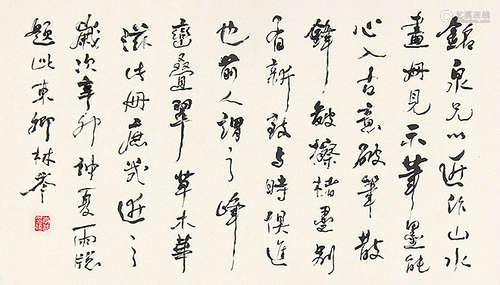 銘泉兄以近作山水
畫冊見示筆墨能
心入古意破筆散
鋒皴擦楮墨別
有新致与時俱進
也前人謂之峰
巒疊翠草木華
滋此冊庶幾近之
歲次辛卯神夏雨窓
題此東鄉林岑